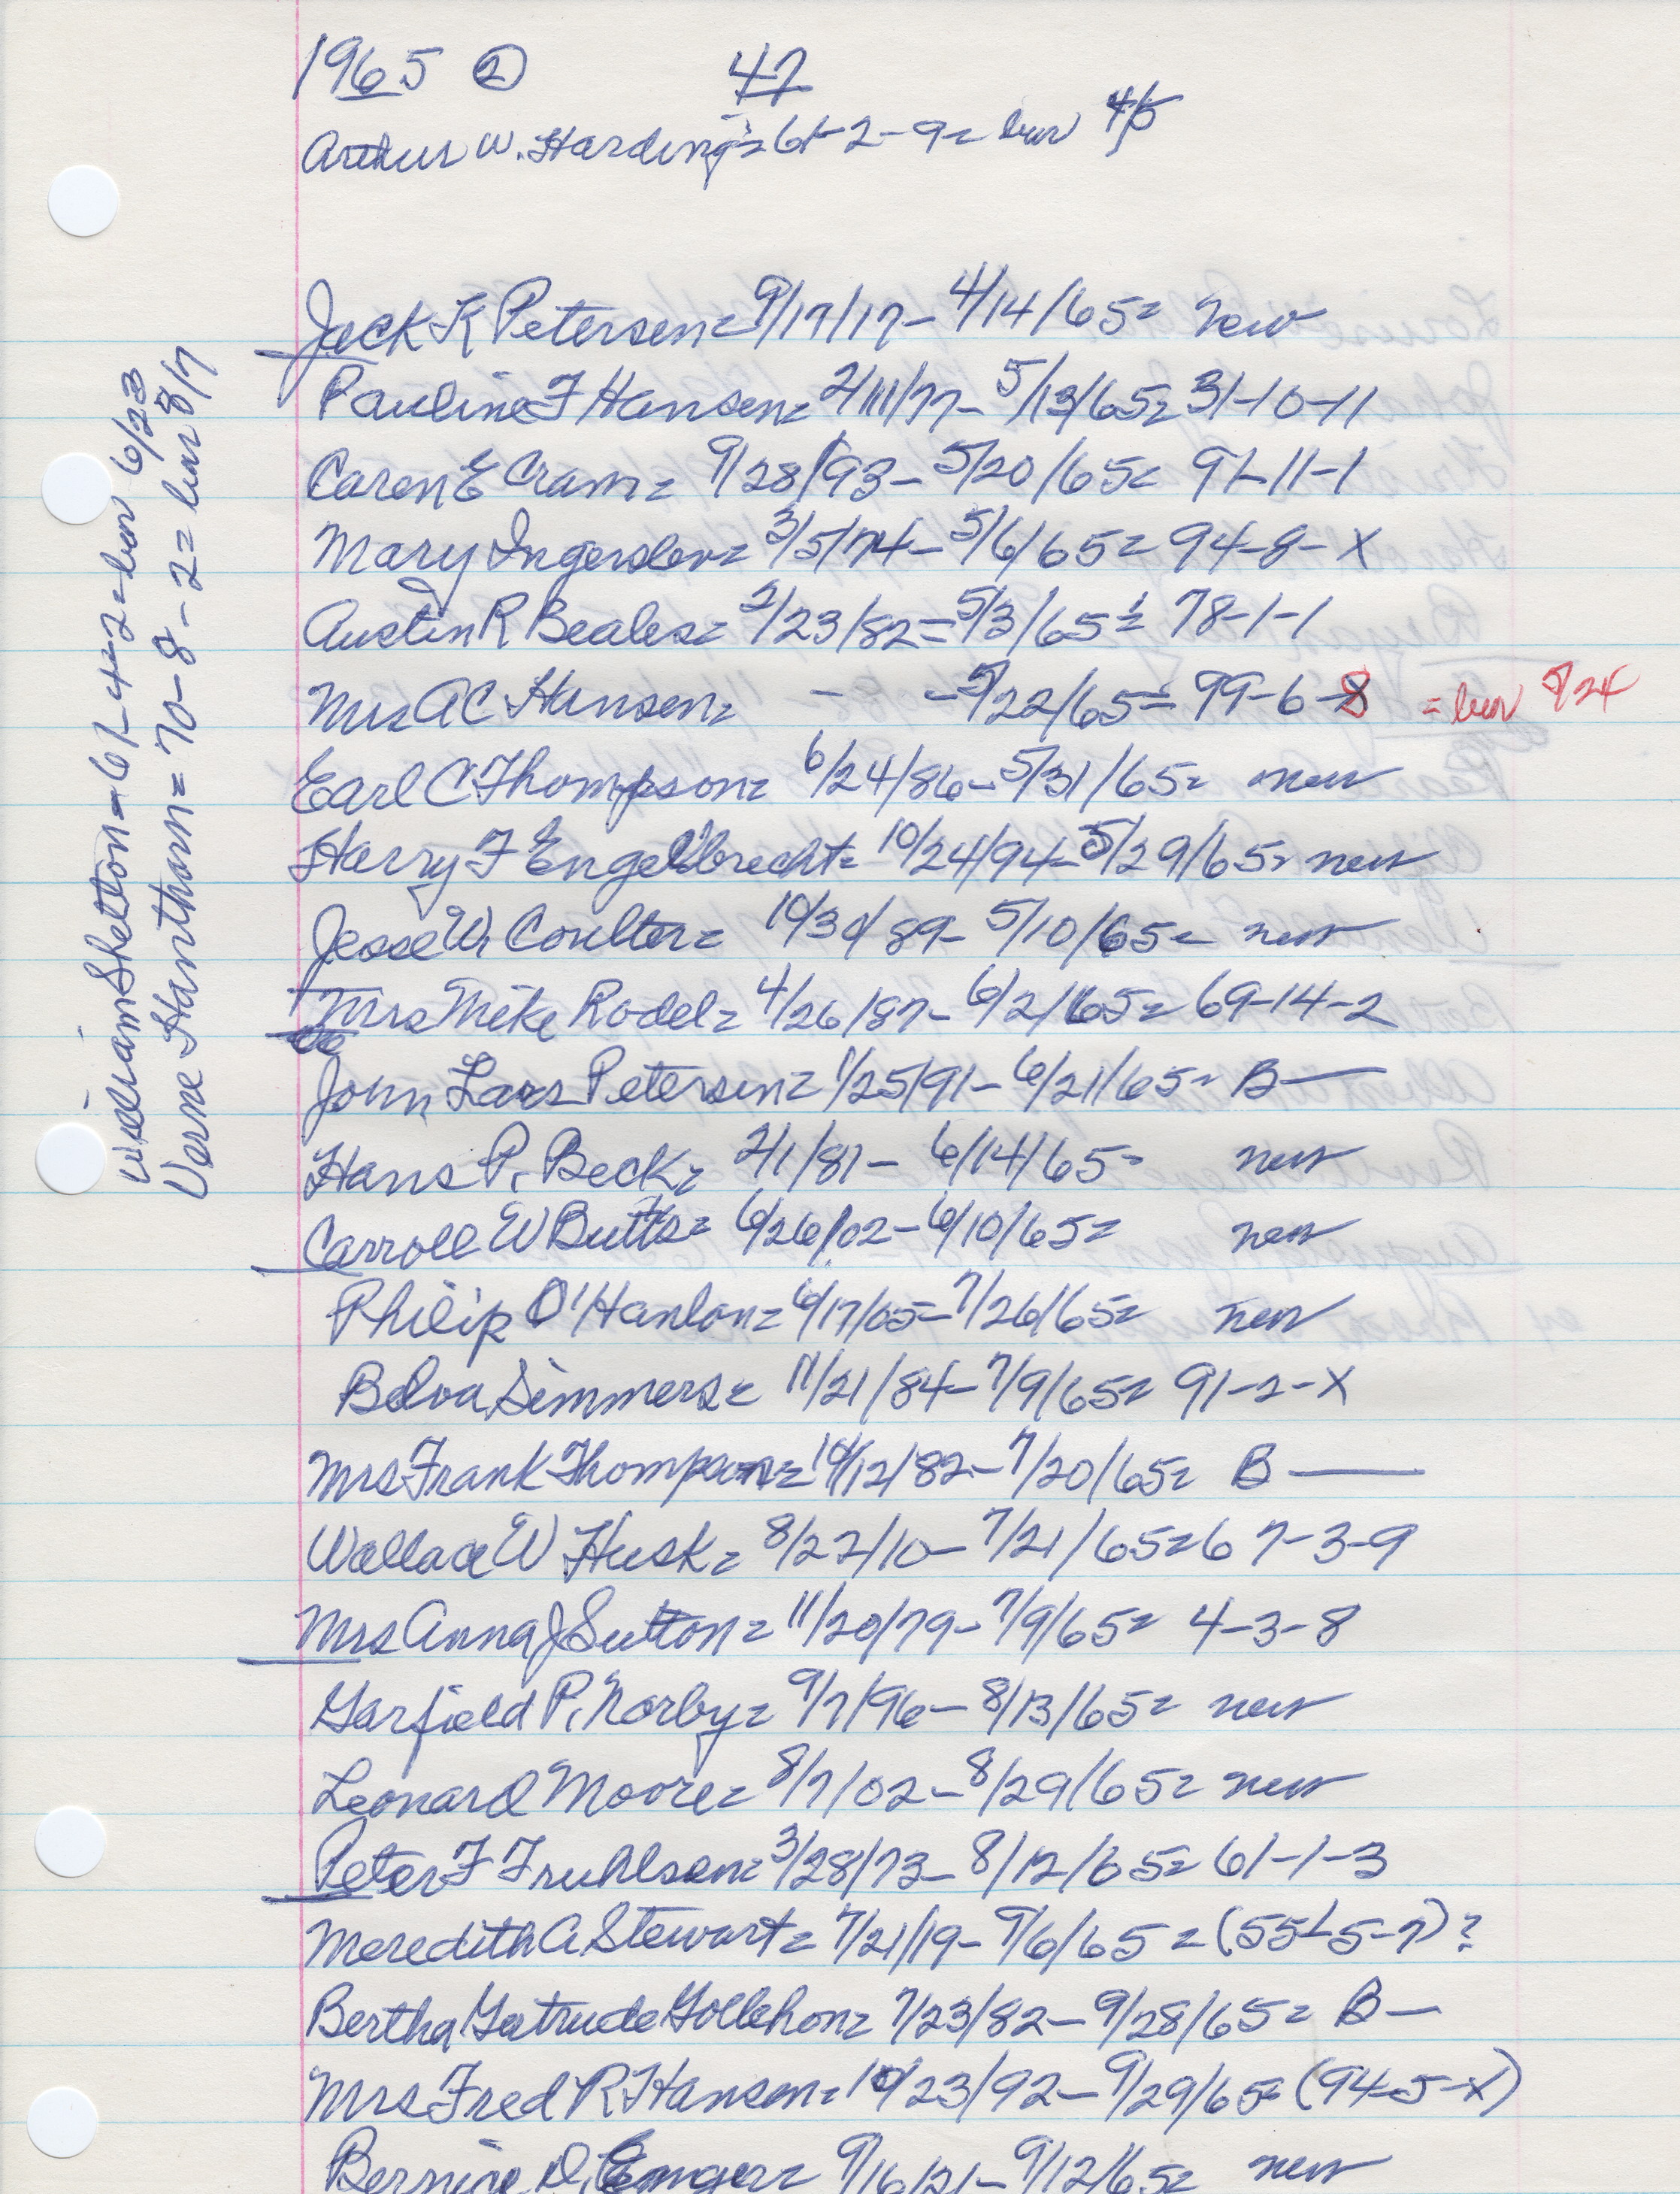 1965 ② 47
Arthur W. Harding = 61-2-9 = bur 4/5
Jack K Petersen = 9/17/17 - 4/14/65 = new
Pauline F Hansen = 2/11/77 - 5/13/65 = 31-10-11
Caren E Cram = 9/28/93 - 5/20/65 = 91-11-1
Mary Ingerslev = 3/5/74 - 5/6/65 = 94-8-X
Austin R Beales = 2/23/82 = 5/3/65 = 78-1-1
Mrs AC Hansen = - - 5/22/65 = 99-6-8 = bur 5/24
Earl C Thompson = 6/24/86 - 5/31/65 = new
Harry F Engelbrecht = 10/24/94 - 5/29/65 = new
Jesse W. Coulter = 10/30/89 - 5/10/65 = new
Mrs Mike Rodel = 4/26/87 - 6/2/65 = 69-14-2
John Lars Petersen = 1/25/91 - 6/21/65 = B—
Hans P. Beck = 2/1/81 - 6/14/65 = new
Carroll W Butts = 6/26/02 - 6/10/65 = new
Philip O'Hanlon = 6/17/05 - 7/26/65 = new
Belva Simmers = 11/21/84 - 7/9/65 = 91-2-X
Mrs Frank Thompson = 10/12/82 - 7/20/65 = B—
Wallace W Husk = 8/22/10 - 7/21/65 = 67-3-9
Mrs Anna J Sutton = 11/20/79 - 7/9/65 = 4-3-8
Garfield P. Norby = 9/7/96 - 8/13/65 = new
Leonard Moore = 8/7/02 - 8/29/65 = new
Peter F Fruhlsen = 3/28/73 - 8/12/65 = 61-1-3
Meredith A Stewart = 7/21/19 - 9/6/65 = (55-5-7)?
Bertha Gertrude Gollehon = 7/23/82 - 9/28/65 = B—
Mrs Fred R Hansen = 10/23/92 - 9/29/65 = (94-5-X)
Bernice D. = 9/16/21 - 9/12/65 = new
William Shelton = 61-4-2 = bur 6/23
Verne Hanthorn = 70-8-2 = bur 8/7